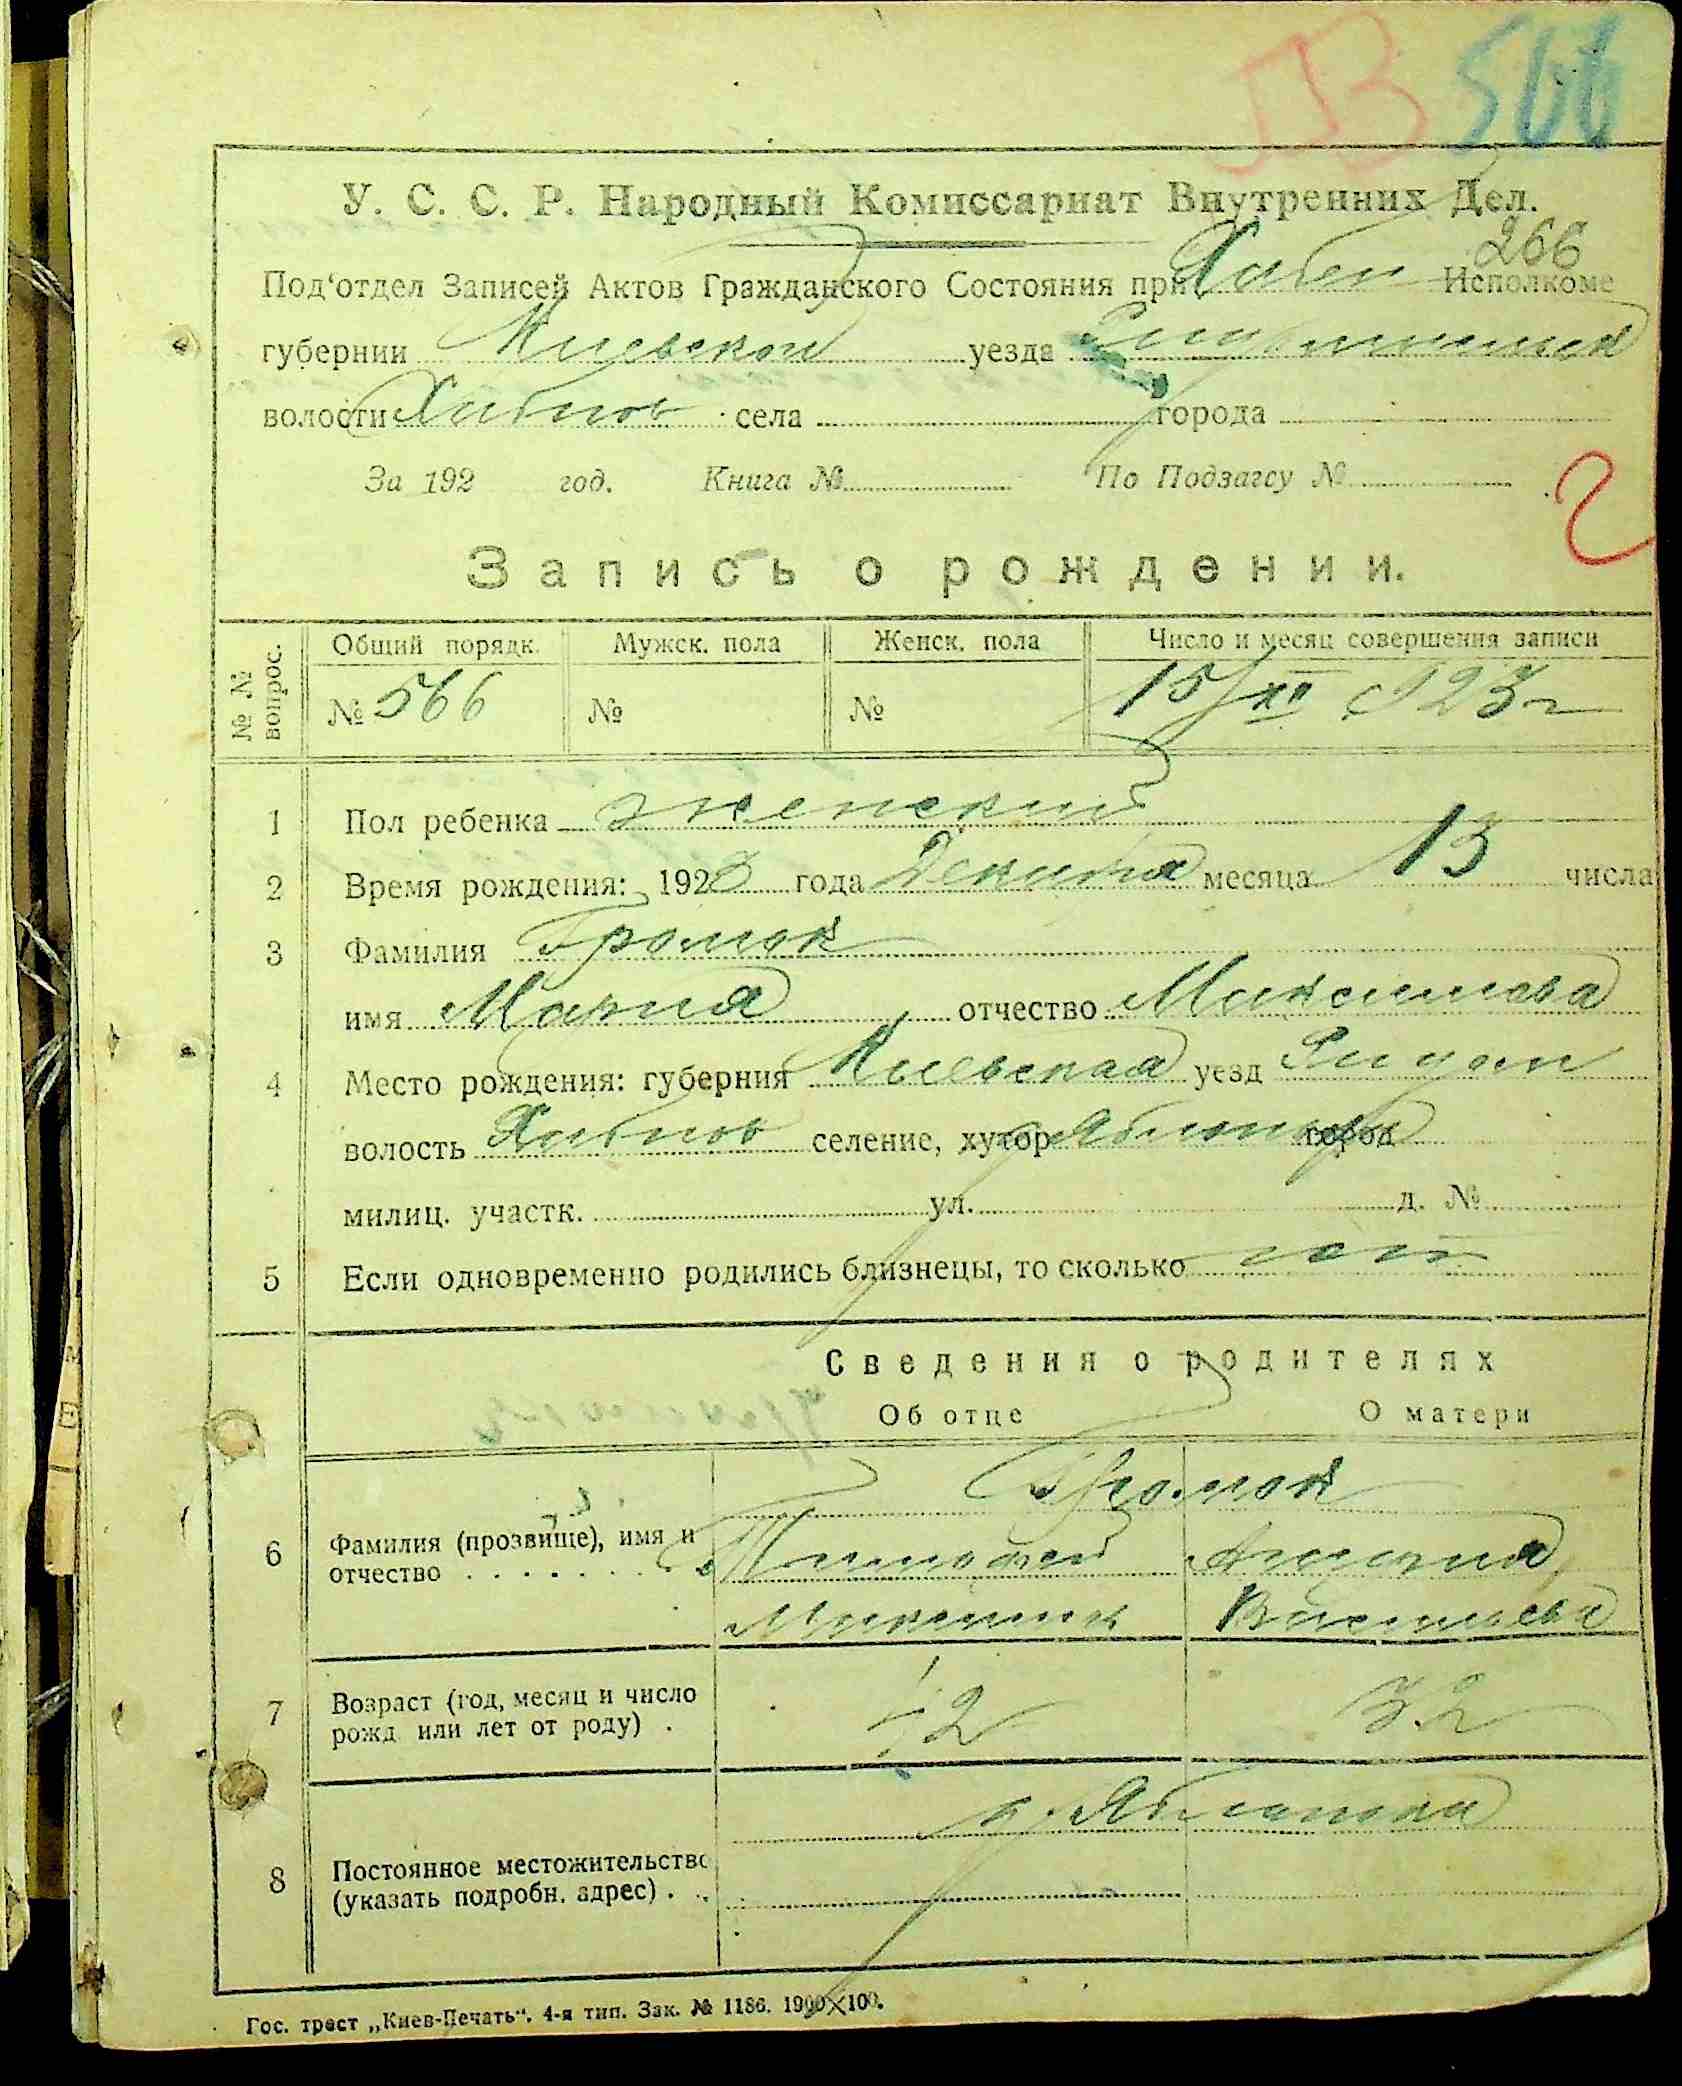 ПВ 566
У. С. С. Р. Народный Комиссариат Внутренних Дел.
266
Под‘отдел Записей Актов Гражданского Состояния при Хабен Исполкоме
губернии Киевской уезда
волости Хабнов села города
За 192 год. Книга № По Подзагсу №
2
Запись о рождении.
№ № вопрос.
Общий порядк. Мужск. пола Женск. пола Число и месяц совершения записи
№ 566 № № 15/XII 1923 г
1 Пол ребенка женский
2 Время рождения: 1923 года Декабря месяца 13 числа
3 Фамилия Громок
имя Мария отчество
4 Место рождения: губерния Киевская уезд
волость Хабнов селение, хутор Яблонька город
милиц. участк. ул. д. №
5 Если одновременно родились близнецы, то сколько
Сведения о родителях
Об отце О матери
Громок
6 Фамилия (прозвище), имя и
отчество . . . . . . .
Тимофей
Максимов Васильева
7 Возраст (год, месяц и число
рожд или лет от роду) .
42 32
с. Яблонька
8 Постоянное местожительство
(указать подробн. адрес) . .
Гос. трест „Киев-Печать“. 4-я тип. Зак. № 1186. 1900×100.